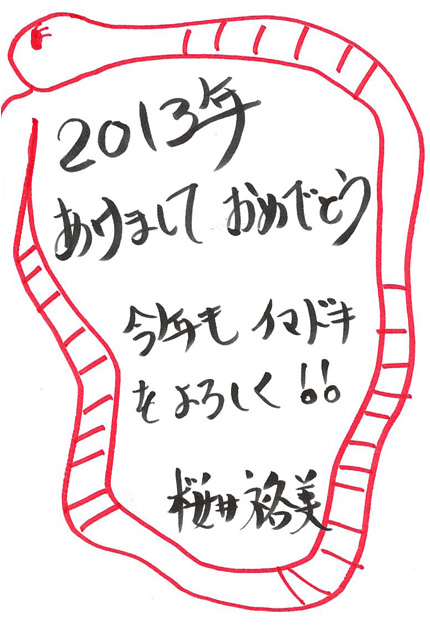 2013年
あけまして おめでとう
今年も イマドキ
をよろしく!!
桜井裕美